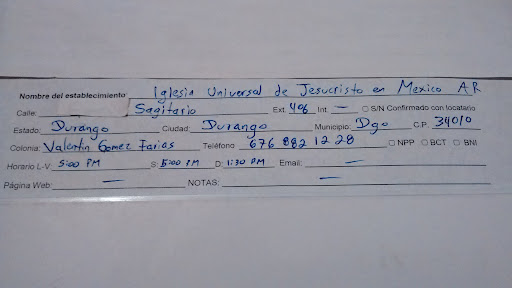 Nombre del establecimiento Iglesia Universal de Jesucristo en Mexico AR
Calle: Sagitario Ext. 406 Int. — S/N Confirmado con locatario
Estado: Durango Ciudad: Durango Municipio: Dgo C.P. 34010
Colonia: Valentin Gomez Farias Teléfono 676 882 12 28 NPP BCT BNI
Horario L-V: 5:00 PM S: 5:00 PM D: 1:30 PM Email: —
Página Web: — NOTAS: —